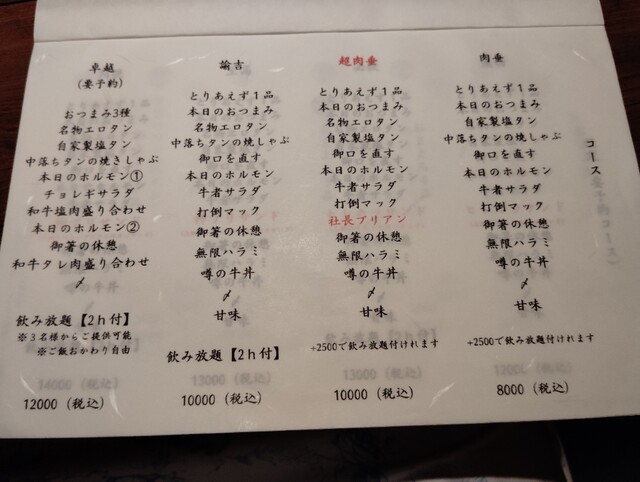 コース
肉壺
とりあえず1品
本日のおつまみ
自家製塩タン
中落ちタンの焼しゃぶ
御口を直す
本日のホルモン
牛者サラダ
打倒マック
御箸の休憩
無限ハラミ
噂の牛丼
〆
甘味
+2500で飲み放題付けれます
8000（税込）
超肉壺
とりあえず1品
本日のおつまみ
名物エロタン
自家製塩タン
御口を直す
本日のホルモン
牛者サラダ
打倒マック
社長ブリアン
御箸の休憩
無限ハラミ
噂の牛丼
〆
甘味
+2500で飲み放題付けれます
10000（税込）
諭吉
とりあえず1品
本日のおつまみ
名物エロタン
中落ちタンの焼しゃぶ
御口を直す
本日のホルモン
牛者サラダ
打倒マック
御箸の休憩
無限ハラミ
噂の牛丼
〆
甘味
飲み放題【2h付】
10000（税込）
卓越
（要予約）
おつまみ3種
名物エロタン
自家製塩タン
中落ちタンの焼きしゃぶ
本日のホルモン①
チョレギサラダ
和牛塩肉盛り合わせ
本日のホルモン②
御箸の休憩
和牛タレ肉盛り合わせ
〆
飲み放題【2h付】
※3名様からご提供可能
※ご飯おかわり自由
12000（税込）